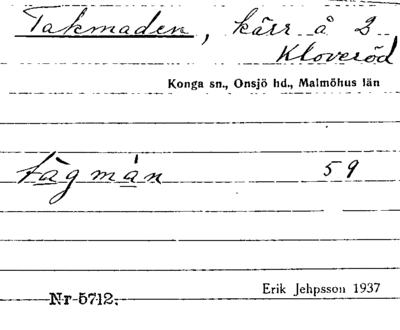 Takmaden, kärr å 2
Kloveröd
Konga sn., Onsjö hd., Malmöhus län
tàgmàn 59
Nr 5712.
Erik Jehpsson 1937